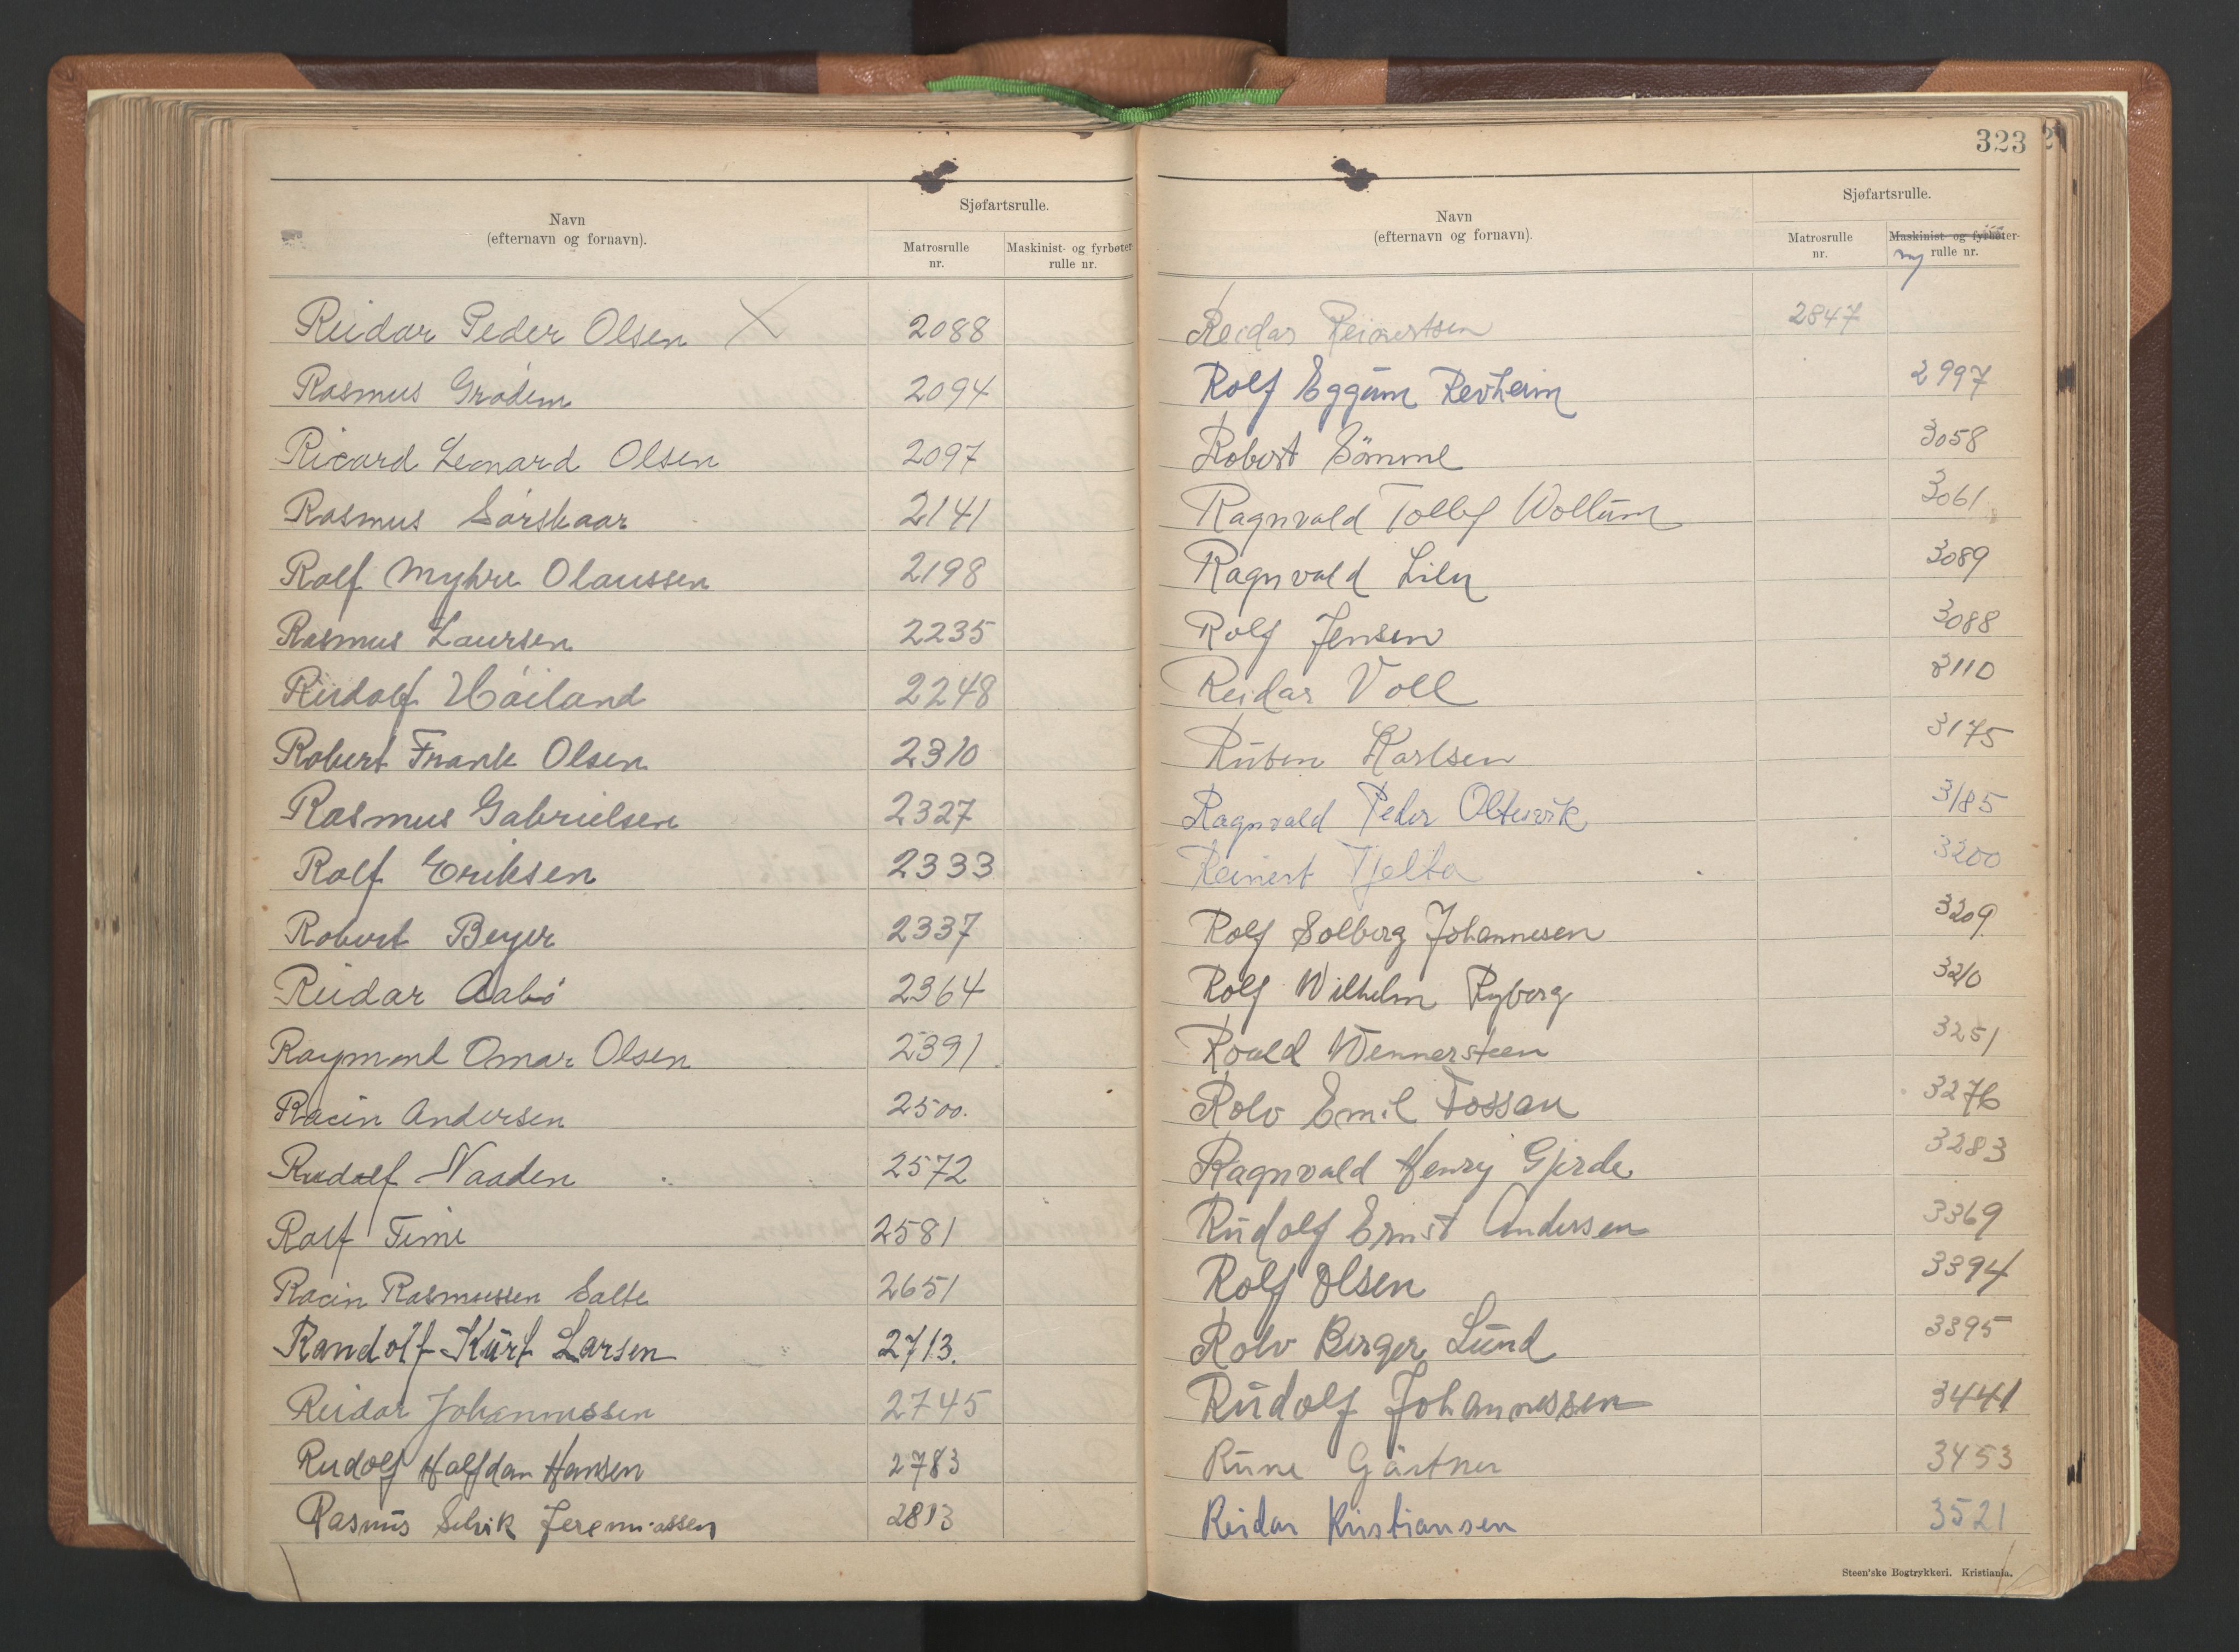 Navn
(efternavn og fornavn).
Sjøfartsrulle.
Matrosrulle
nr.
Maskinist- og fyrbøter
rulle nr.
Reidar Peder Olsen X 2088
Rasmus Grødem 2094
Ricard Leonard Olsen 2097
Rasmus Sørskaar 2141
Rolf Myhre Olaussen 2198
Rasmus Laursen 2235
Rudolf Høiland 2248
Robert Frank Olsen 2310
Rasmus Gabrielsen 2327
Rolf Eriksen 2333
Robert Beyer 2337
Reidar Aabø 2364
Raymond Omar Olsen 2391
Racin Andersen 2500.
Rudolf Naaden 2572
Rolf Time 2581
Racin Rasmussen Salte 2651
Randolf Kurt Larsen 2713.
Reidar Johannessen 2745
Rudolf Halfdan Hansen 2783
Rasmus Selvik Jeremiassen 2813
323
Navn
(efternavn og fornavn).
Sjøfartsrulle.
Matrosrulle
nr.
Maskinist- og fyrbøter-
ny rulle nr.
Reidar Reinertsen 2847
Rolf Eggum Revheim 2997
Robert Sømme 3058
Ragnvald Tollef Wollum 3061
Ragnvald Lilu 3089
Rolf Jensen 3088
Reidar Voll 3110
Ruben Karlsen 3175
Ragnvald Peder Oltesvik 3185
Reinert Tjelta 3200
Rolf Solberg Johannesen 3209
Rolf Wilhelm Ryberg 3210
Roald Wennersteen 3251
Rolv Emil Fossan 3276
Ragnvald Henry Gjerde 3283
Rudolf Ernst Andersen 3369
Rolf Olsen 3394
Rolv Birger Lund 3395
Rudolf Johannessen 3441
Rune Gärtner 3453
Reidar Kristiansen 3521
Steen'ske Bogtrykkeri. Kristiania.